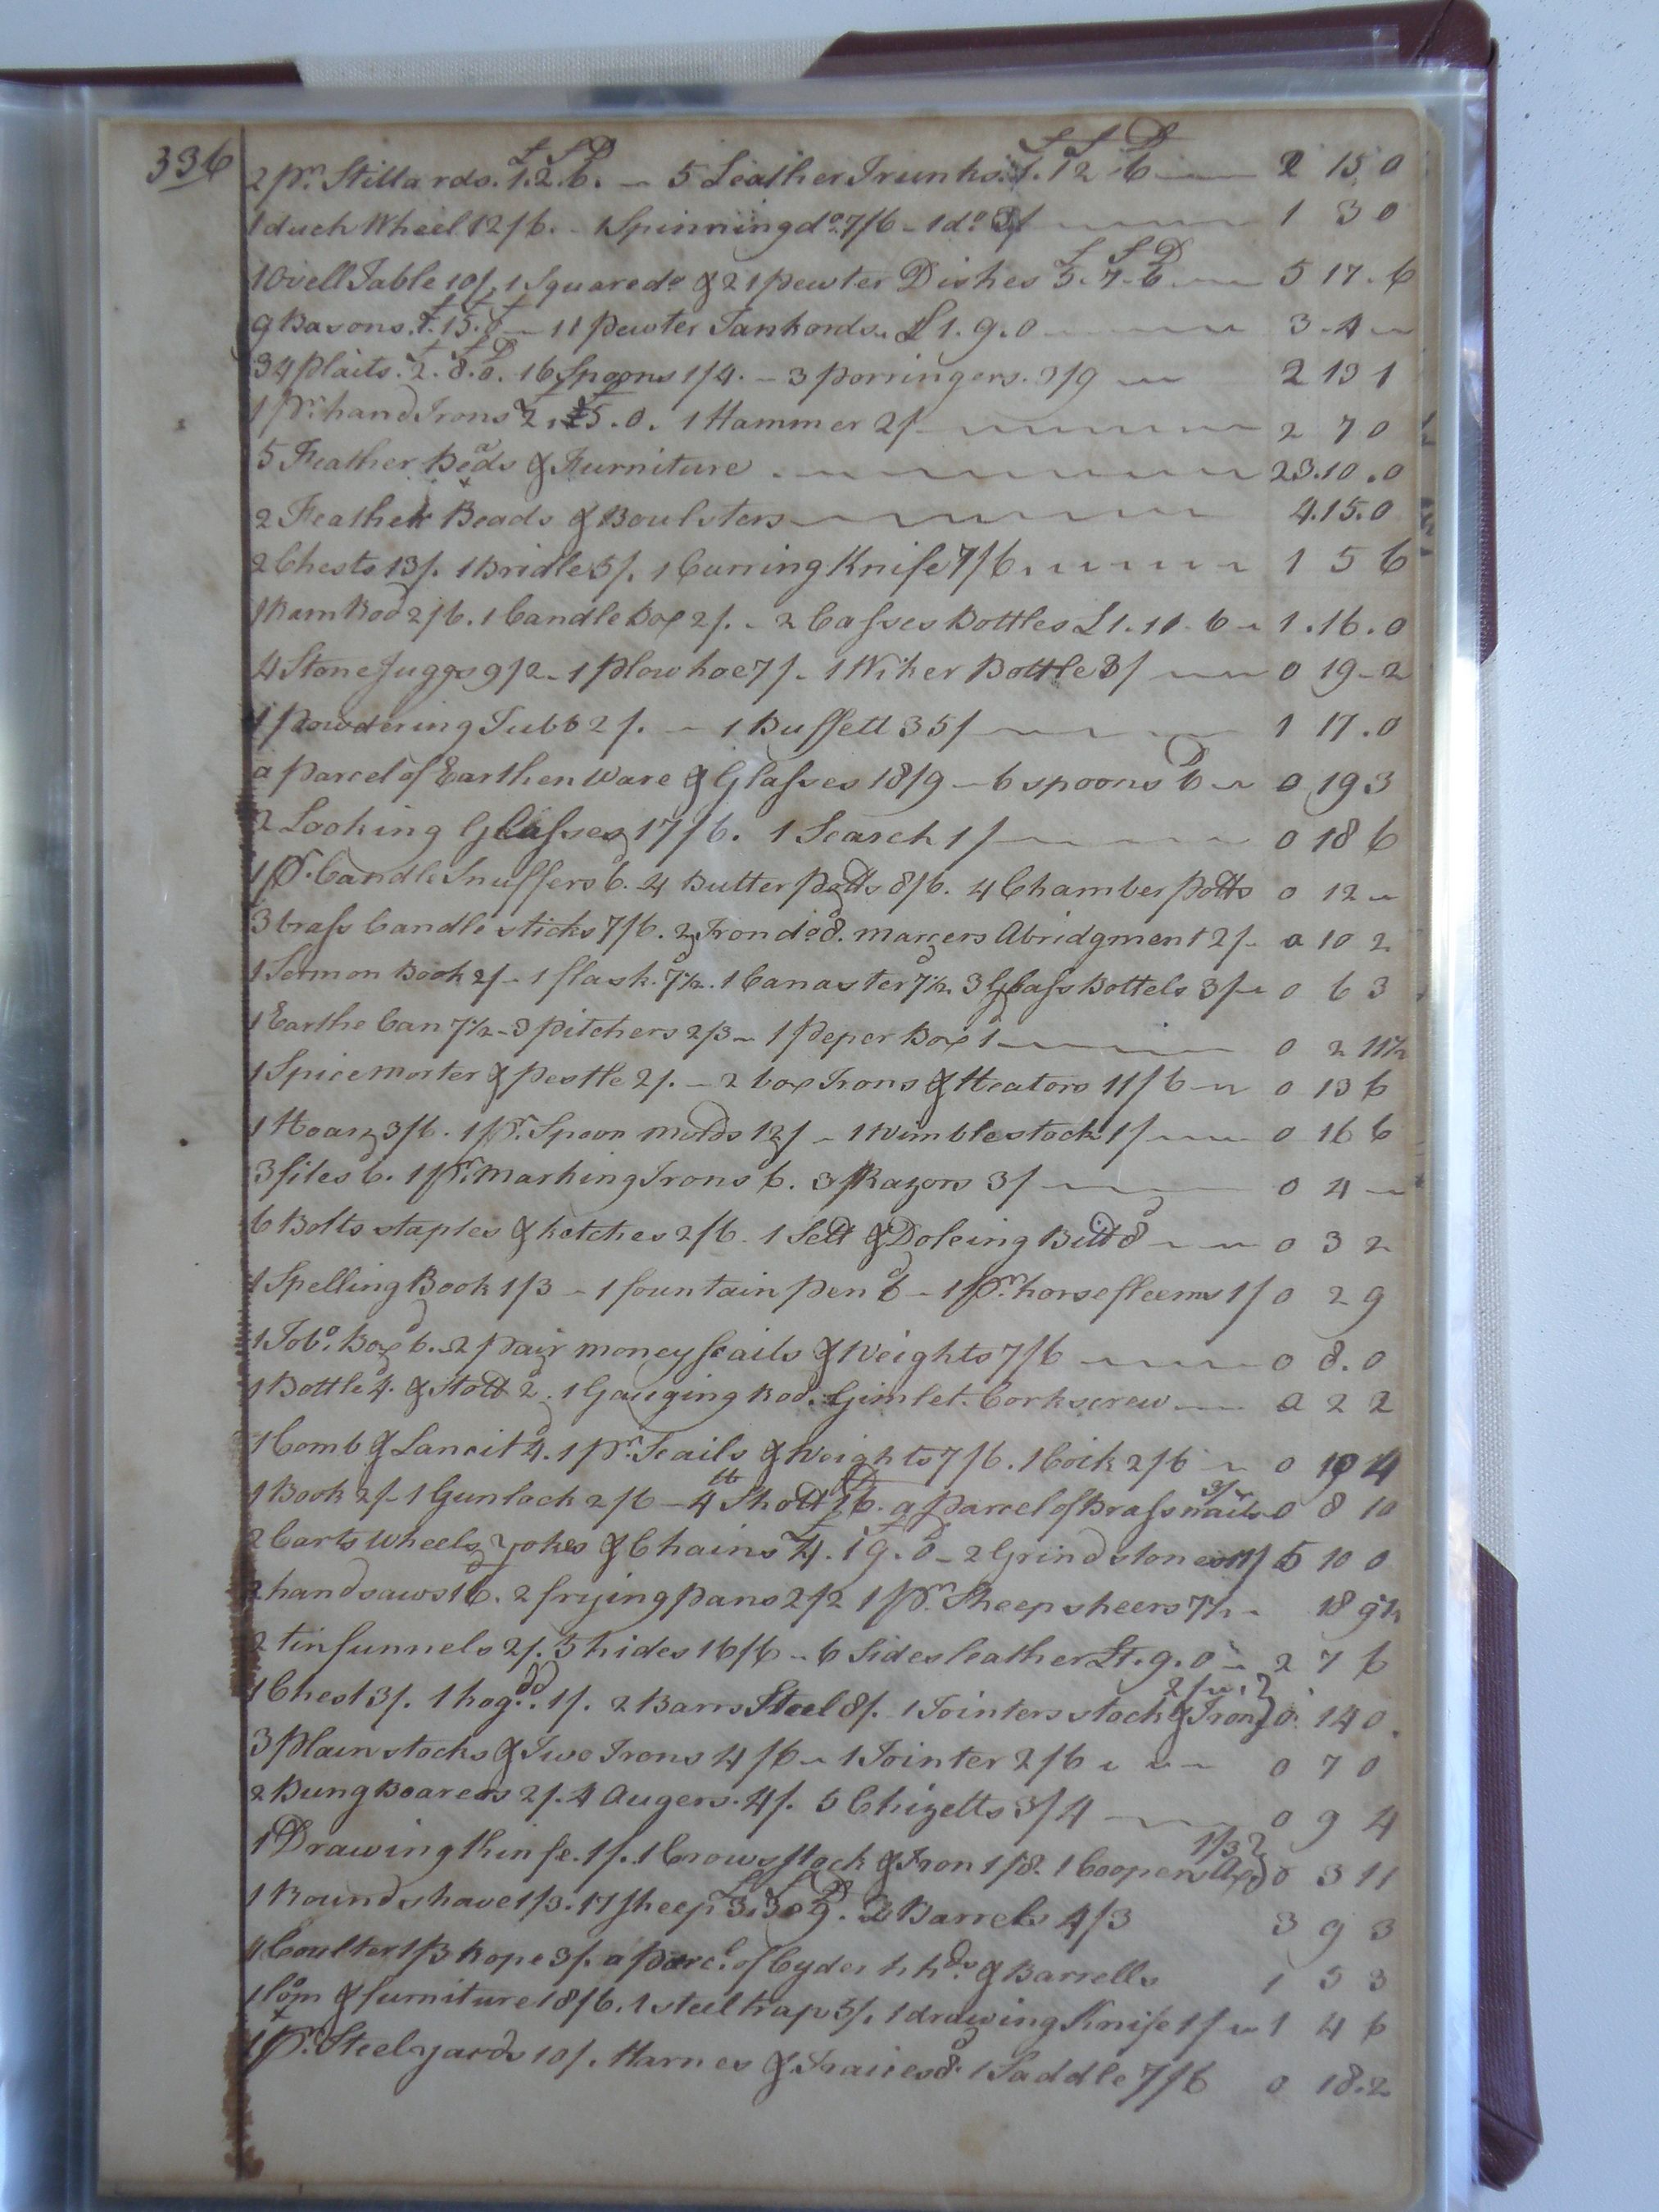 336
2 pr. Stillards. £ S D 1.2.6. — 5 Leather Trunks. £ S D 1.12.6 — 2 15 0
1 duch Wheel 12/6. - 1 Spinning do. 7/6 - 1 do. 3/ — 1 3 0
1 Ovell Table 10/, 1 Square do & 21 pewter Dishes £ S D 5.7.6 — 5 17.6
9 Basons. 1.15.0 — 11 pewter Tankords. £1.9.0 — 3.4 —
34 Plaits. £ S D 2.8.0. 16 Spoons 1/4. — 3 porringers. 3/9 — 2 13 1
1 pr. hand Irons 2.5.0. 1 Hammer 2/ — 2 7 0
5 Feather Beds & Furniture. — 23.10.0
2 Feather Beads & Boulsters — 4.15.0
2 Chests 13/. 1 Bridle 5/. 1 Curring Knife 7/6. — 1 5 6
1 Ram Rod 2/6. 1 Candle Box 2/. - 2 Casses Bottles £1.11.6 — 1.16.0
4 Stone Juggs 9/2 - 1 plow hoe 7/. 1 Wiker Bottle 3/ — 0 19-2
1 powdering Tubb 2/. — 1 Buffett 35/ — 1 17.0
a parcel of Earthen Ware & Glasses 18/9 — 6 spoons D 6 — 0 19 3
2 Looking Glasses 17/6. 1 Search 1/ — 0 18 6
1 pr. Candle Snuffers 6. 4 Butter potts 8/6. 4 Chamber potts 0 12 —
3 brass Candle sticks 7/6. 2 Iron do d 8. marcers Abridgment 2/- 0 10 2
1 Sermon Book 2/ - 1 flask. d 7½. 1 Canaster d 7½. 3 Glass Bottels 3/- 0 6 3
1 Earthe Can 7½ - 3 pitchers 2/3 — 1 peper Box d 1 — 0 2 11½
1 Spice morter & pestle 2/. — 2 box Irons & Heators 11/6 — 0 13 6
1 Hoan 3/6. 1 pr. Spoon molds 12/ - 1 Wimble stock 1/ — 0 16 6
3 files 6. 1 pr. Marking Irons 6. 3 Razors 3/ — 0 4 —
6 Bolts staples & ketches 2/6. 1 Sett & Doleing Bitt d 8 — 0 3 2
1 Spelling Book 1/3 - 1 fountain pen d 6 - 1 pr. horse fleems 1/ 0 2 9
1 Tobo. Box d 6. 2 pair money scails & Weights 7/6 — 0 8.0
1 Bottle 4. & Stott d 2. 1 Gauging Rod. Gimlet. Cork screw — 0 2 2
1 Comb & Lancit d 4. 1 pr. Scails & Weights 7/6. 1 Cock 2/6 — 0 10 4
1 Book 2/ - 1 Gun lock 2/6 — 4 lb Shott D 16. a parcel of Brass nails 3/ 0 8 10
2 Carts Wheels yokes & Chains 4.19.0 - 2 Grindstones 11/ 5 10 0
2 handsaws 16. 2 frying pans 2/2 1 pr. Sheep sheers 7½ - 18 9½
2 tin funnels 2/. 5 hides 16/6 - 6 Sides leather £1.9.0 — 2 7 6
1 Chest 3/. 1 hogdd. 1/. 2 Barrs Steel 8/. 1 Jointers stock & Iron 2/ 0 14 0.
3 Plain stocks & Two Irons 4/6 — 1 Jointer 2/6 — 0 7 0
2 Bung Boarers 2/. 4 Augers. 4/. 5 Chizells 3/4 — 0 9 4
1 Drawing Kinfe. 1/. 1 Crows stock & Iron 1/8. 1 Coopers Ax 1/3 0 3 11
1 Round shave 1/3. 17 sheep £ S D 3.3.9. 2 Barrels 4/3 3 9 3
1 Coulter 1/3 Rope 3/. a parcl. of Cyder hhds. & Barrells 1 5 3
1 Loom & furniture 18/6. 1 steel trap 5/. 1 drawing Knife 1/ — 1 4 6
1 pr. Steelyards 10/. Harnes & Traices d 8. 1 Saddle 7/6 0 18.2